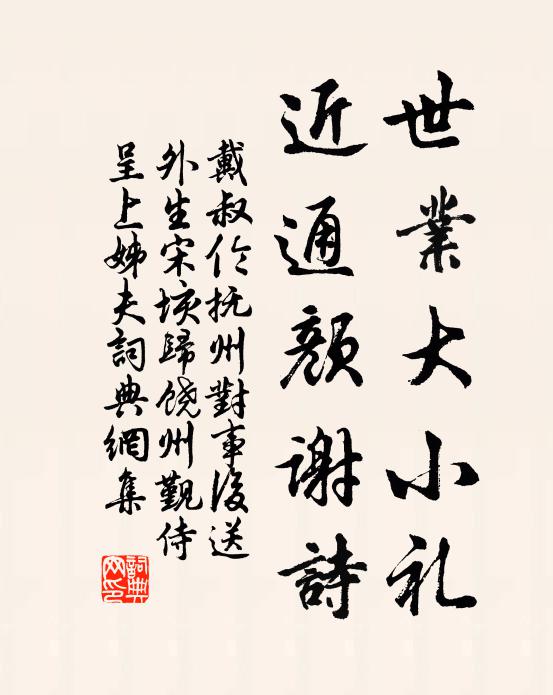 世業大小礼
近通顔謝詩
戴叔伦抚州對事後送
外生宋垓歸饶州覲侍
呈上姊夫詞典網集
詞典网印